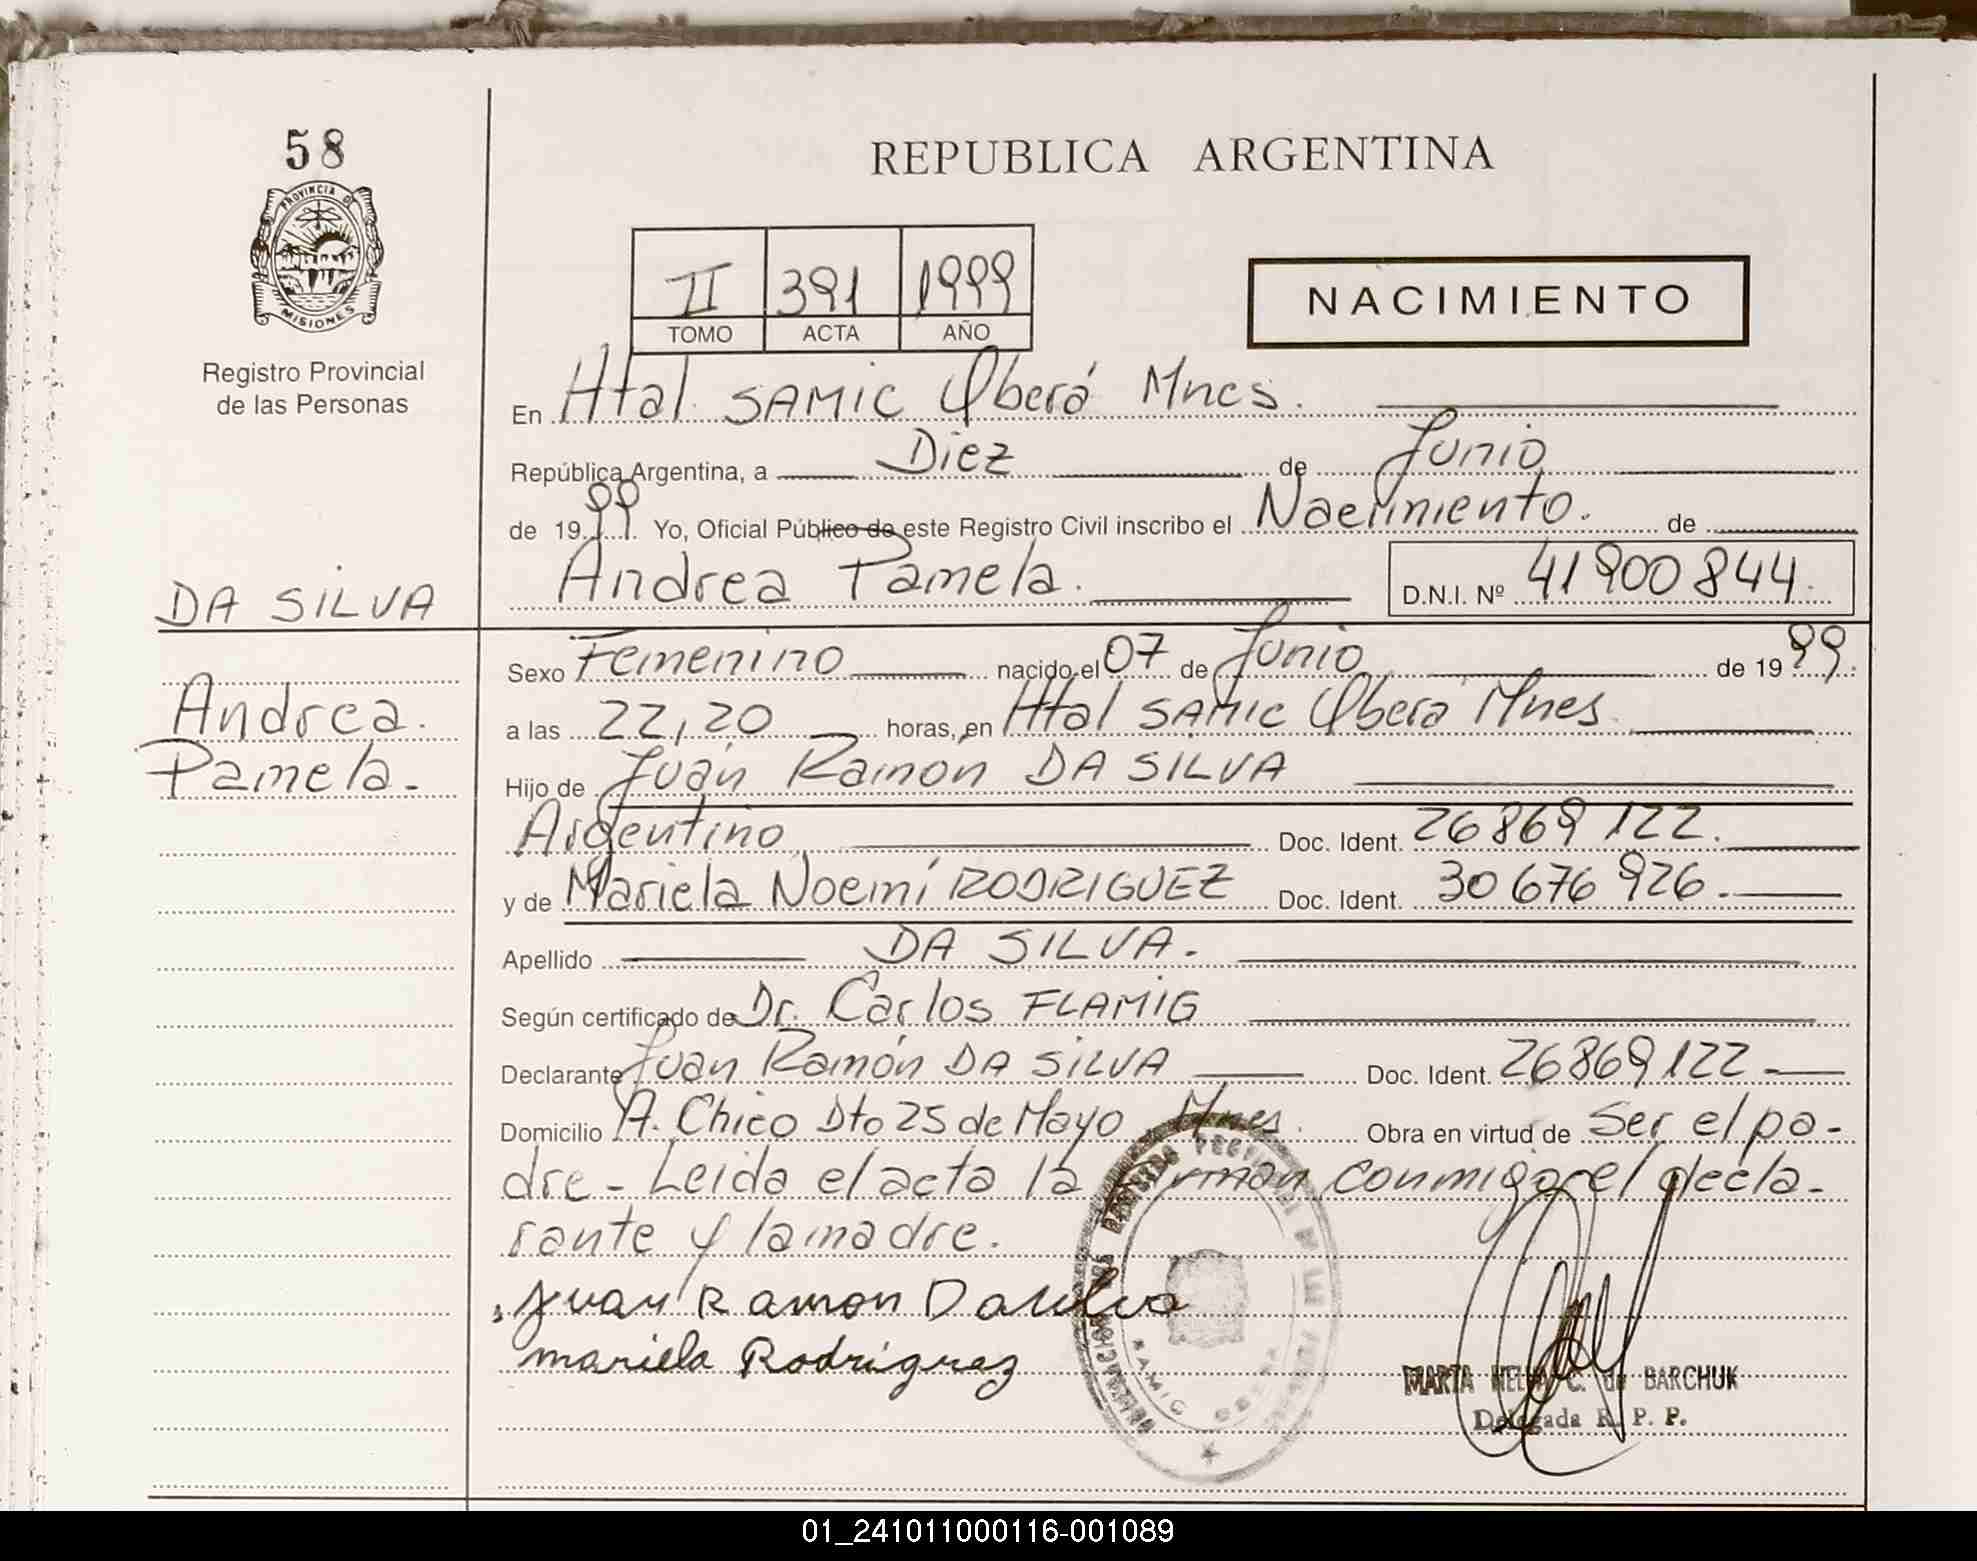 58
PROVINCIA DE
MISIONES
Registro Provincial
de las Personas
REPUBLICA ARGENTINA
II 391 1999
TOMO ACTA AÑO
NACIMIENTO
En Htal SAMIC Oberá Mnes.
República Argentina, a Diez de Junio
de 1999. Yo, Oficial Público de este Registro Civil inscribo el Nacimiento. de
DA SILVA
Andrea Pamela. D.N.I. Nº 41900844.
Sexo Femenino nacido el 07 de Junio de 1999.
Andrea.
a las 22,20 horas, en Htal SAMIC Oberá Mnes
Pamela.
Hijo de Juan Ramón DA SILVA
Argentino Doc. Ident. 26869122.
y de Mariela Noemí RODRIGUEZ Doc. Ident. 30676926.
Apellido DA SILVA.
Según certificado de Dr. Carlos FLAMIG
Declarante Juan Ramón DA SILVA Doc. Ident. 26869122
Domicilio A. Chico Dto 25 de Mayo Mnes. Obra en virtud de Ser el pa-
dre - Leida el acta la firman conmigo el decla-
rante y la madre.
Juan Ramon Da silva
mariela Rodriguez
MARTA C. de BARCHUK
Delegada R. P. P.
01_241011000116-001089